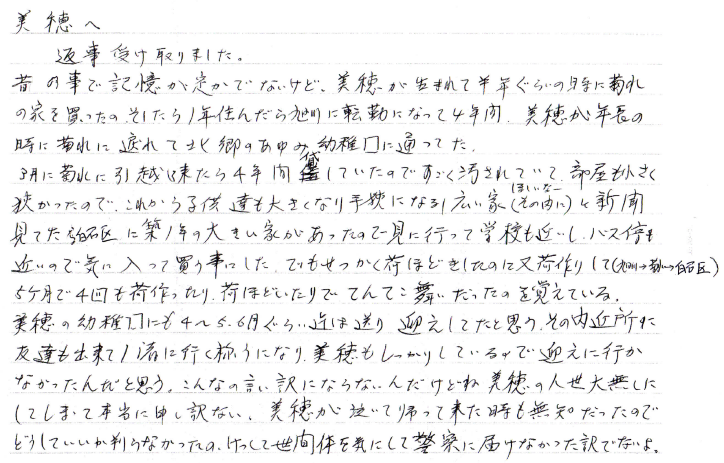 美穂へ
返事受け取りました。
昔の事で記憶が定かでないけど、美穂が生まれて半年ぐらいの時に菊水
の家を買ったの。そしたら1年住んだら旭川に転勤になって4年間、美穂が年長の
時に菊水に戻れて北郷のあゆみ幼稚口に通ってた。
3月に菊水に引越し来たら4年間貸していたのですごく汚されていて、部屋も小さく
狭かったので、これから子供達も大きくなり手狭になるし広い家(その内に)と新聞
ほしいなー
見てたら白石区に築1年の大きい家があったので一見に行って学校も近いし、バス停も
近いので気に入って買う事にした。でもせっかく荷ほどきしたのに又荷作りして(旭川→菊水→白石区)
5ヶ月で4回も荷作ったり、荷ほどいたりでてんてこ舞いだったのを覚えている。
美穂の幼稚口にも4〜5.6月ぐらい迄は送り迎えしてたと思う。その内近所に
友達も出来て1緒に行く様になり、美穂もしっかりしているので迎えに行か
なかったんだと思う。こんなの言い訳にならないんだけどね 美穂の人世大無しに
してしまって本当に申し訳ない、美穂が泣いて帰って来た時も無知だったので
どうしていいか判らなかったの、けっして世間体を気にして警察に届けなかった訳でないよ。